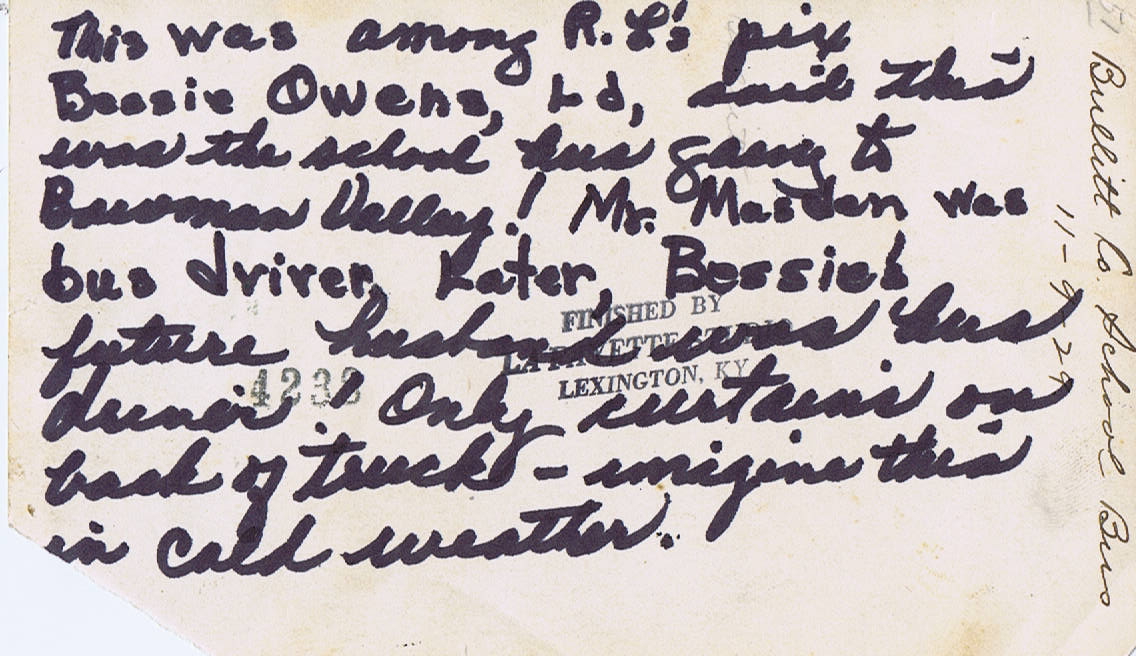 This was among R. L's pix
Bessie Owens, Ld, said this
was the school bus going to
Bowman Valley! Mr. Masden was
bus driver. Later, Bessie's
future husband was bus
driver! Only curtains on
back of truck - imigine this
in cold weather.
FINISHED BY
LAFAYETTE STUDIO
LEXINGTON, KY.
4233
Bullitt Co. School Bus
11-9-29
51